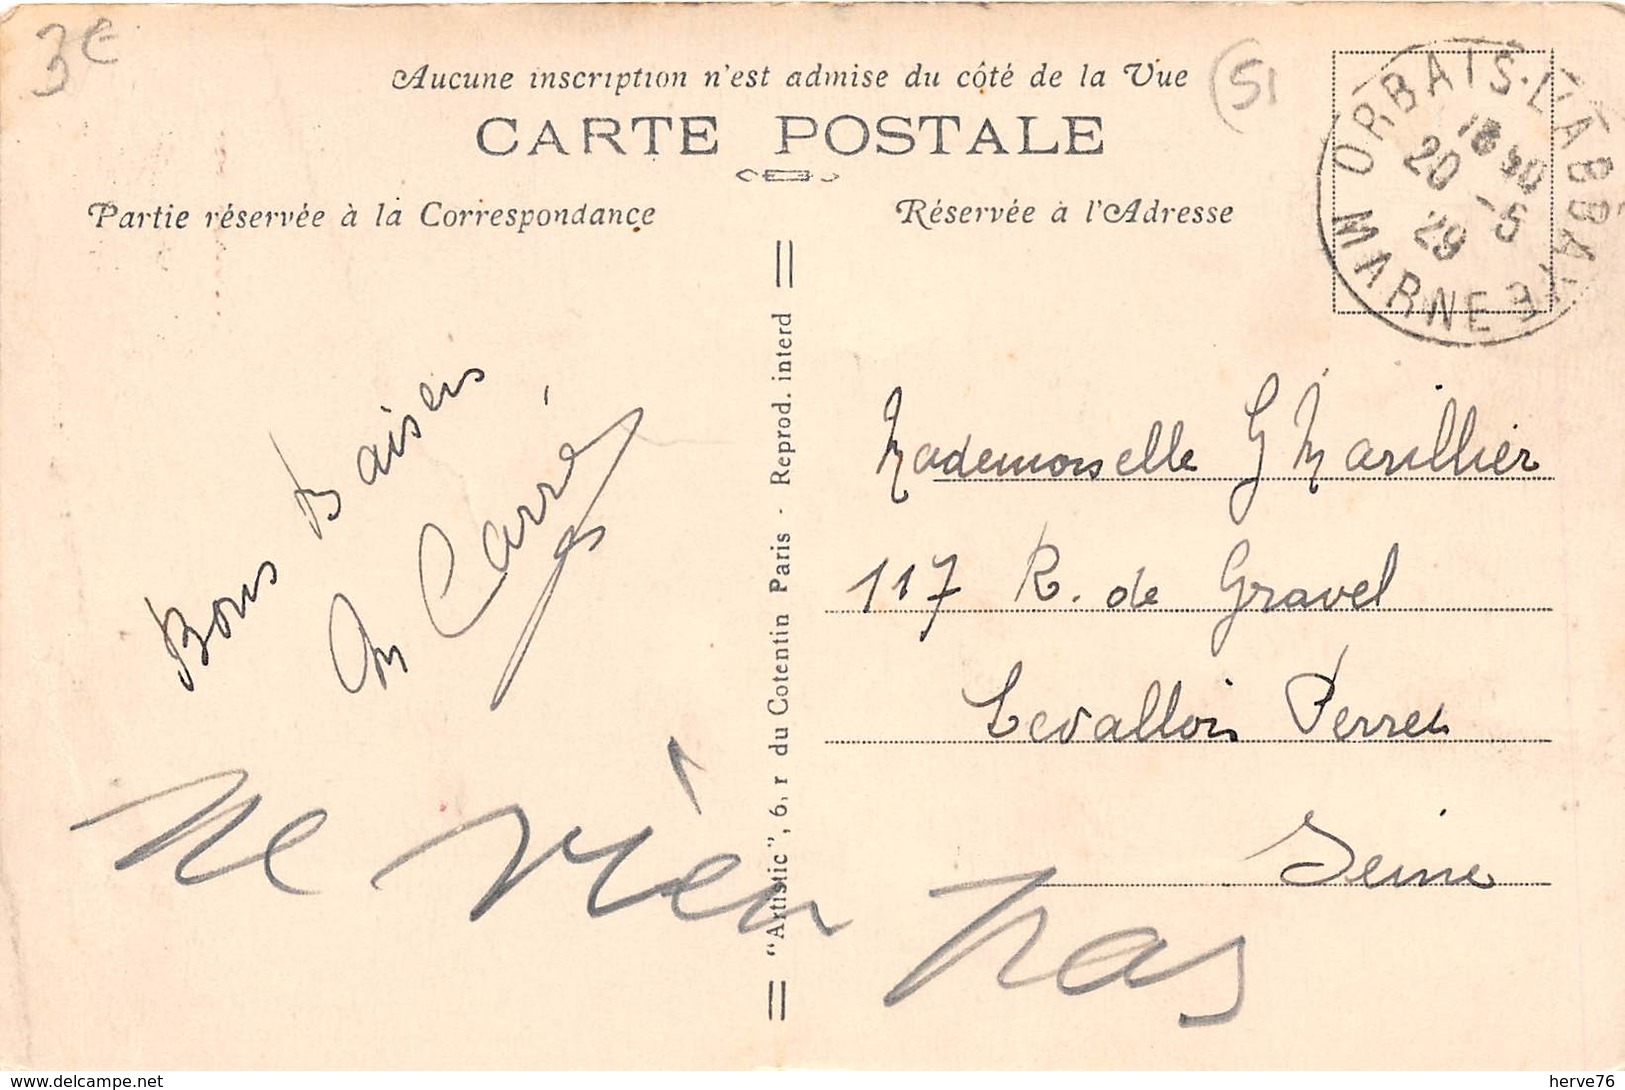 3€
Aucune inscription n'est admise du côté de la Vue
(51
CARTE POSTALE
ORBAIS-L'ABBAYE
18 40
20 -5
29
MARNE
Partie réservée à la Correspondance
Réservée à l'Adresse
Bons Baisers
M Carré
"Artistic", 6, r du Cotentin Paris - Reprod. interd
Mademoiselle G Marillier
117 R. de Gravel
Levallois Perret
Seine
ne rien pas
http://www.delcampe.net
herve76